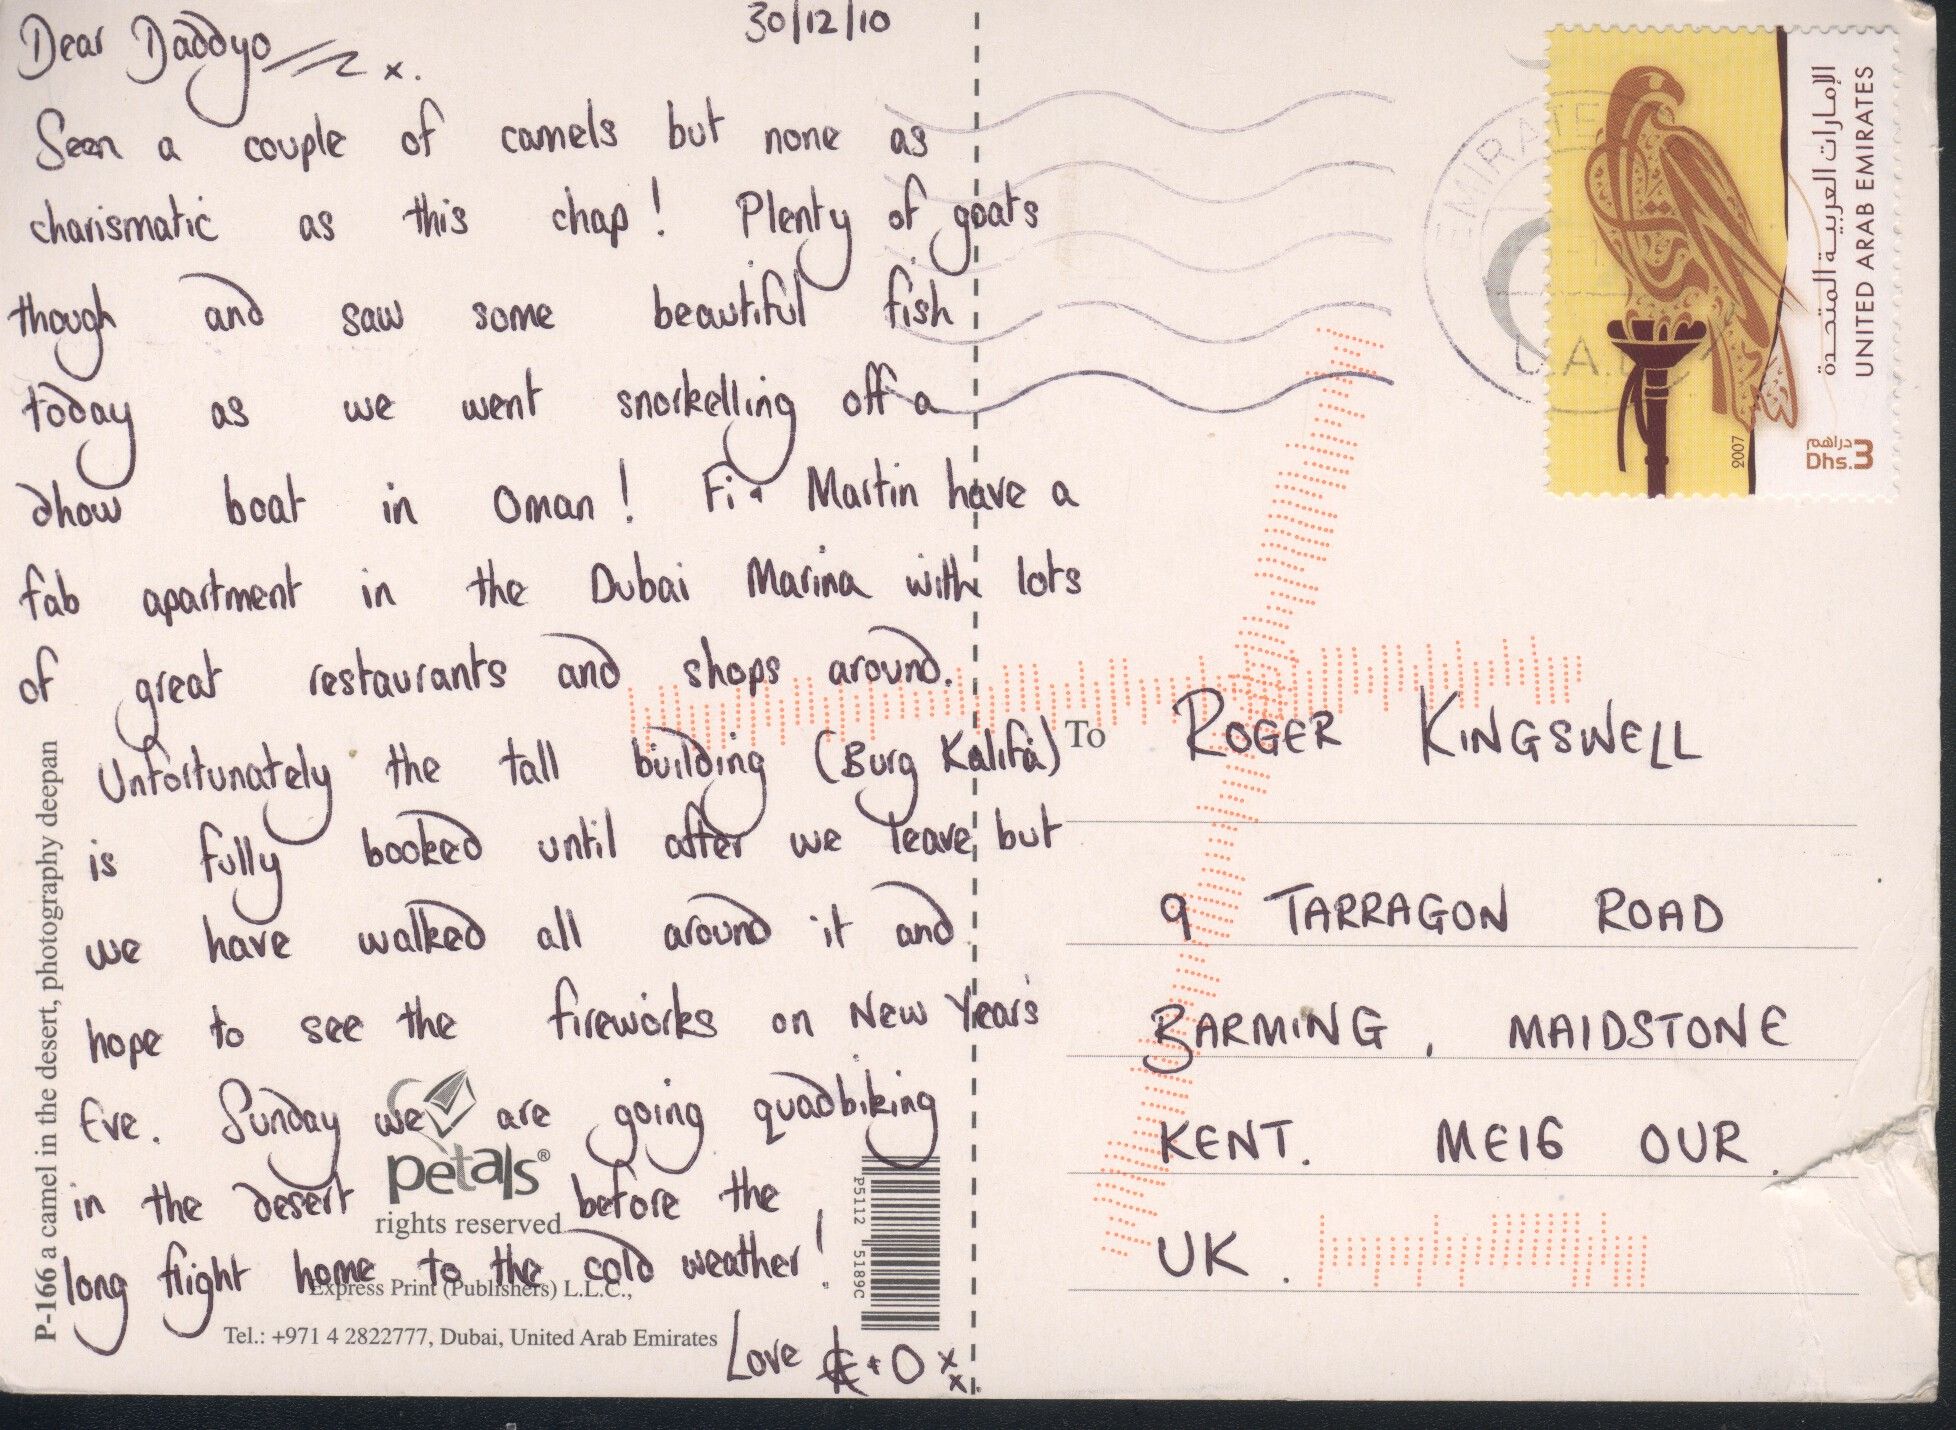 30/12/10
Dear Daddyo x.
Seen a couple of camels but none as
charismatic as this chap! Plenty of goats
though and saw some beautiful fish
today as we went snorkelling off a
dhow boat in Oman! Fi & Martin have a
fab apartment in the Dubai Marina with lots
of great restaurants and shops around.
Unfortunately the tall building (Burg Kalifa)
is fully booked until after we leave, but
we have walked all around it and
hope to see the fireworks on New Year's
Eve. Sunday we are going quadbiking
in the desert before the
long flight home to the cold weather!
Love & O xx.
P-166 a camel in the desert, photography deepan
petals®
rights reserved
Express Print (Publishers) L.L.C.,
Tel.: +971 4 2822777, Dubai, United Arab Emirates
P5112 5189C
EMIRATE
U.A.E
الإمارات العربية المتحدة
UNITED ARAB EMIRATES
2007
دراهم
Dhs.3
To
ROGER KINGSWELL
9 TARRAGON ROAD
BARMING, MAIDSTONE
KENT. ME16 OUR.
UK.